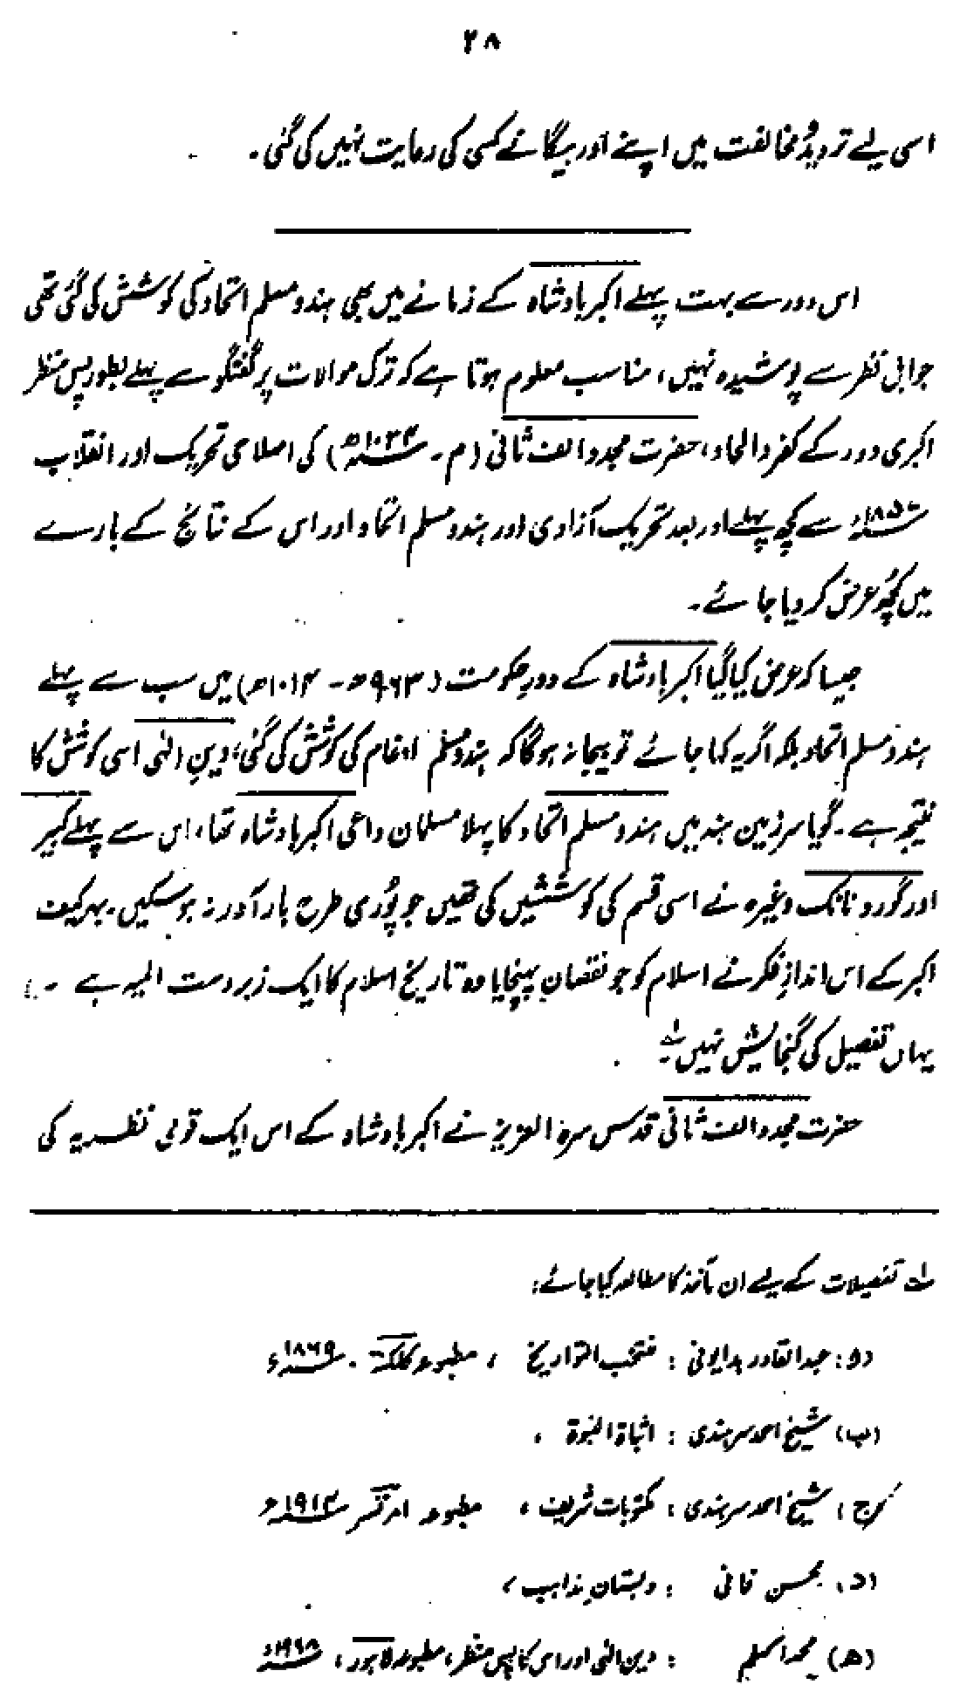 ۲۸
اسی لیے تردید و مخالفت میں اپنے اور بیگانے کسی کی رعایت نہیں کی گئی۔
اس دور سے بہت پہلے اکبر بادشاہ کے زمانے میں بھی ہندو مسلم اتحاد کی کوشش کی گئی تھی
جو اہلِ نظر سے پوشیدہ نہیں، مناسب معلوم ہوتا ہے کہ ترک موالات پر گفتگو سے پہلے بطور پس منظر
اکبری دور کے کفر و الحاد، حضرت مجدد الف ثانی (م۔ ۱۰۳۴ھ) کی اصلاحی تحریک اور انقلاب
۱۸۵۷ء سے کچھ پہلے اور بعد تحریک آزادی اور ہندو مسلم اتحاد اور اس کے نتائج کے بارے
میں کچھ عرض کر دیا جائے۔
جیسا کہ عرض کیا گیا اکبر بادشاہ کے دورِ حکومت (۹۶۳ھ۔ ۱۰۱۴ھ) میں سب سے پہلے
ہندو مسلم اتحاد بلکہ اگر یہ کہا جائے تو بیجا نہ ہوگا کہ ہندو مسلم ادغام کی کوشش کی گئی، دینِ الٰہی اسی کوشش کا
نتیجہ ہے۔ گویا سرزمین ہند میں ہندو مسلم اتحاد کا پہلا مسلمان داعی اکبر بادشاہ تھا، اس سے پہلے کبیر
اور گورو نانک وغیرہ نے اسی قسم کی کوششیں کی تھیں جو پوری طرح بار آور نہ ہو سکیں۔ بہر کیف
اکبر کے اس اندازِ فکر نے اسلام کو جو نقصان پہنچایا وہ تاریخ اسلام کا ایک زبردست المیہ ہے ۔
یہاں تفصیل کی گنجایش نہیں لے
حضرت مجدد الف ثانی قدس سرہ العزیز نے اکبر بادشاہ کے اس ایک قومی نظریہ کی
لے تفصیلات کے لیے ان مآخذ کا مطالعہ کیا جائے:
(ا) عبدالقادر بدایونی : منتخب التواریخ ، مطبوعہ کلکتہ ۔ ۱۸۶۹ء
(ب) شیخ احمد سرہندی : اثباۃ النبوۃ ،
(ج) شیخ احمد سرہندی : مکتوبات شریف ، مطبوعہ امرتسر ۱۹۱۴ء
(د) محسن فانی : دبستانِ مذاہب ،
(ھ) محمد اسلم : دین الٰہی اور اس کا پس منظر، مطبوعہ لاہور، ۱۹۶۸ء